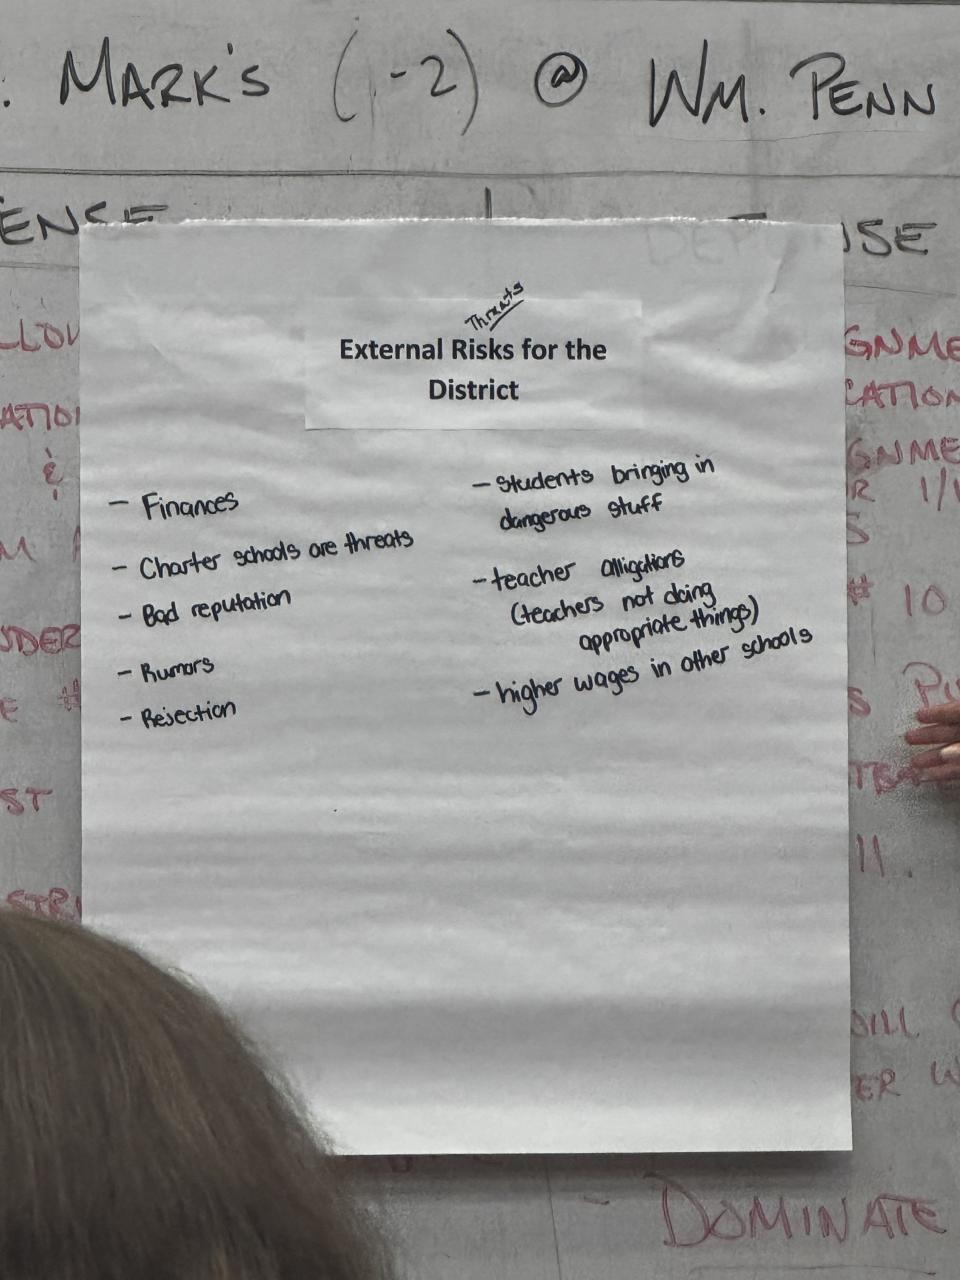 . MARK'S (-2) @ WM. PENN
Threats
External Risks for the
District
- Finances
- Charter schools are threats
- Bad reputation
- Rumors
- Rejection
- Students bringing in
dangerous stuff
- teacher alligations
(teachers not doing
appropriate things)
- higher wages in other schools
ENSE
DEF NSE
GNME
CATION
GNME
R 1/1
S
# 10
11.
&
ST
ER W
- DOMINATE